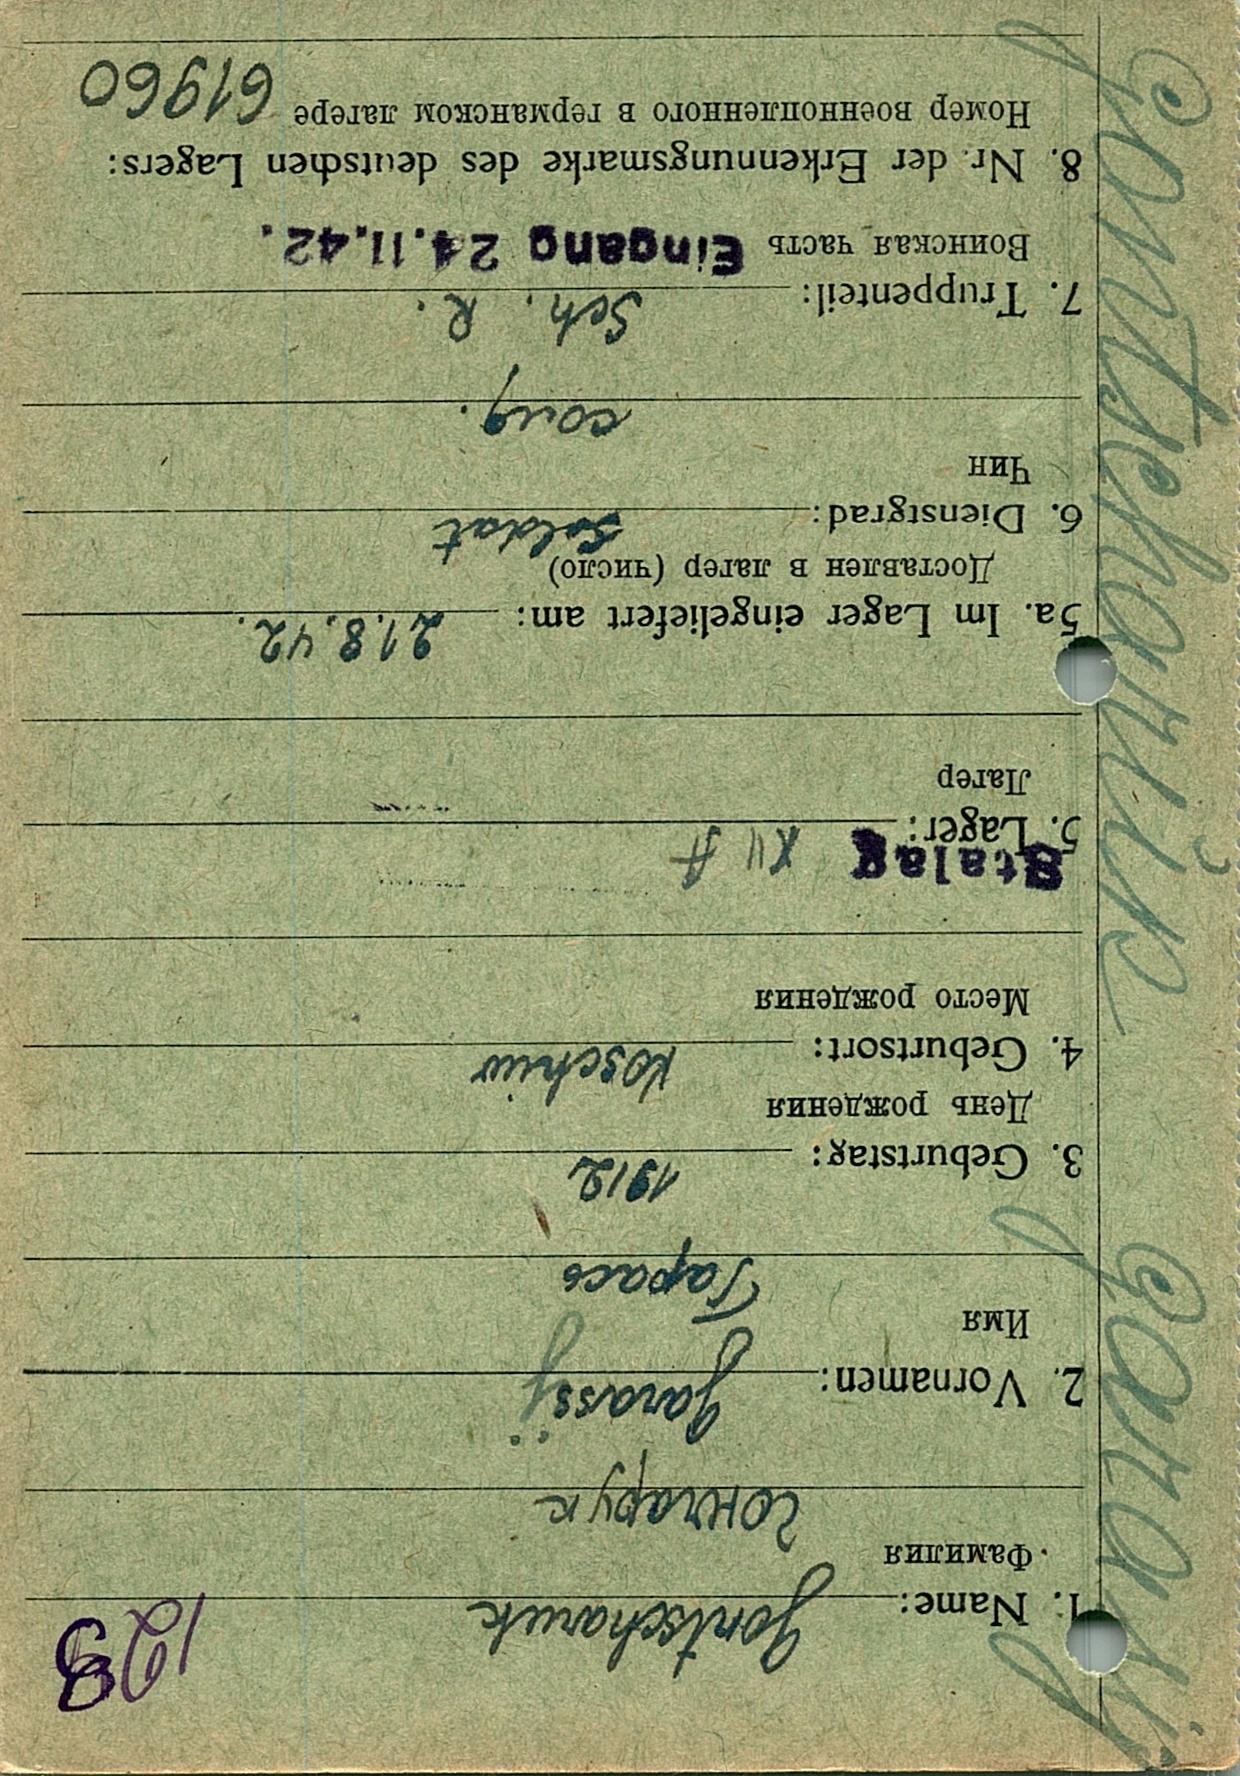 Gontscharuk Garassij
123
1. Name: Gontscharuk
Фамилия
Гончарук
2. Vornamen: Garassij
Имя
Гарась
3. Geburtstag: 1912
День рождения
4. Geburtsort: Koschiw
Место рождения
Stalag XII A
5. Lager:
Лагер
5a. Im Lager eingeliefert am: 21.8.42.
Доставлен в лагер (число)
6. Dienstgrad: Soldat
Чин
солд.
7. Truppenteil: Sch. R.
Воинская часть Eingang 24.11.42.
8. Nr. der Erkennungsmarke des deutschen Lagers:
Номер военнопленного в германском лагере 61960